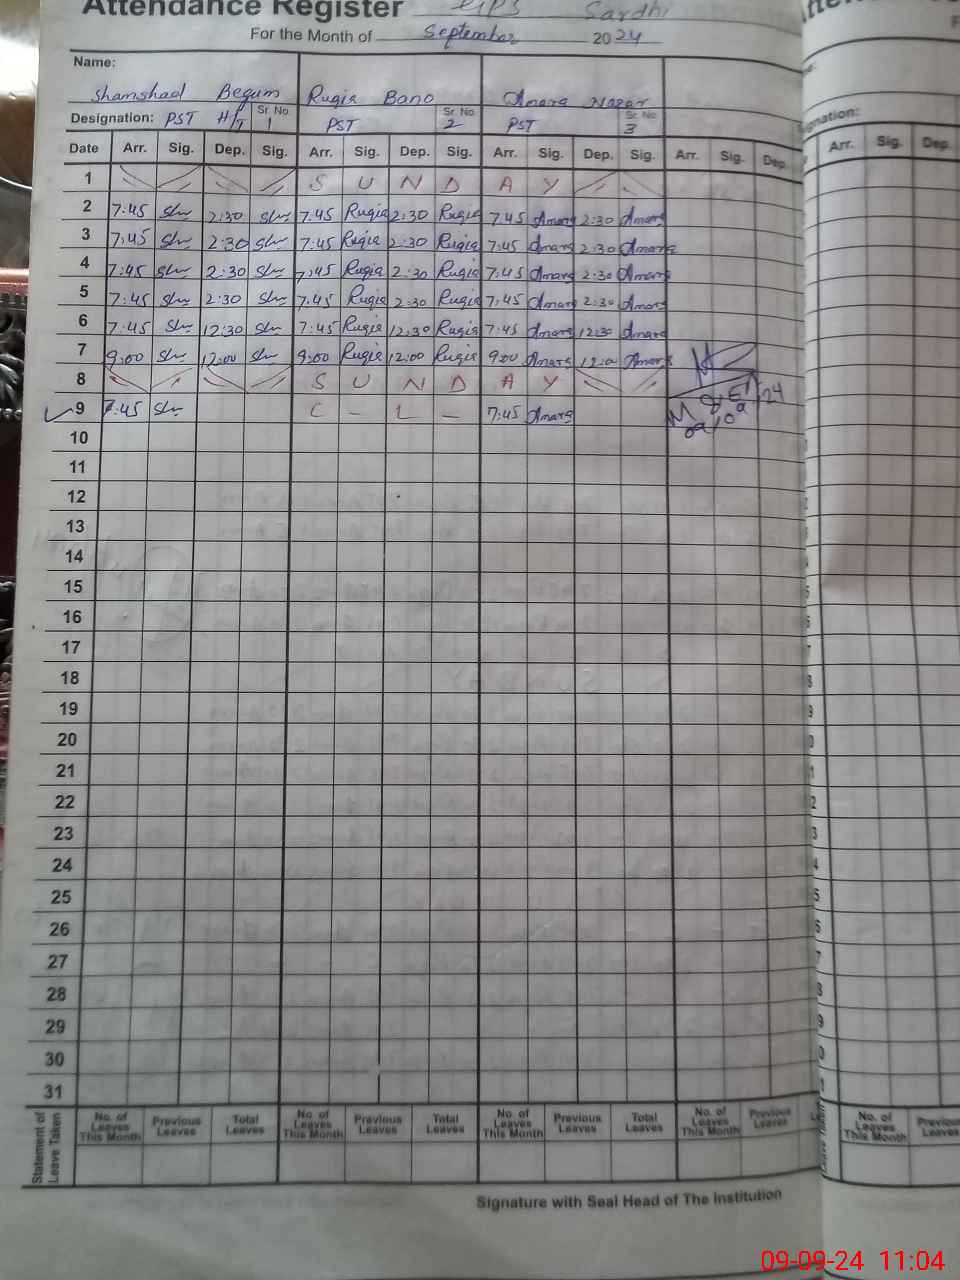 Attendance Register GGPS Sardhi
For the Month of September 2024
Name:
Shamshad Begum Ruqia Bano Amara Nazar
Designation: PST H/T Sr. No. 1 PST Sr. No. 2 PST Sr. No. 3
Date Arr. Sig. Dep. Sig. Arr. Sig. Dep. Sig. Arr. Sig. Dep. Sig. Arr. Sig. Dep.
1 S U N D A Y
2 7:45 2:30 7:45 Ruqia 2:30 Ruqia 7:45 Amara 2:30 Amara
3 7:45 2:30 7:45 Ruqia 2:30 Ruqia 7:45 Amara 2:30 Amara
4 7:45 2:30 7:45 Ruqia 2:30 Ruqia 7:45 Amara 2:30 Amara
5 7:45 2:30 7:45 Ruqia 2:30 Ruqia 7:45 Amara 2:30 Amara
6 7:45 12:30 7:45 Ruqia 12:30 Ruqia 7:45 Amara 12:30 Amara
7 9:00 12:00 9:00 Ruqia 12:00 Ruqia 9:00 Amara 12:00 Amara
8 S U N D A Y
9 7:45 C - L - 7:45 Amara
10
11
12
13
14
15
16
17
18
19
20
21
22
23
24
25
26
27
28
29
30
31
Statement of Leave Taken
No. of Leaves This Month Previous Leaves Total Leaves No. of Leaves This Month Previous Leaves Total Leaves No. of Leaves This Month Previous Leaves Total Leaves No. of Leaves This Month Previous Leaves
Signature with Seal Head of The Institution
Arr. Sig. Dep.
No. of Leaves This Month Previous Leaves
09-09-24 11:04